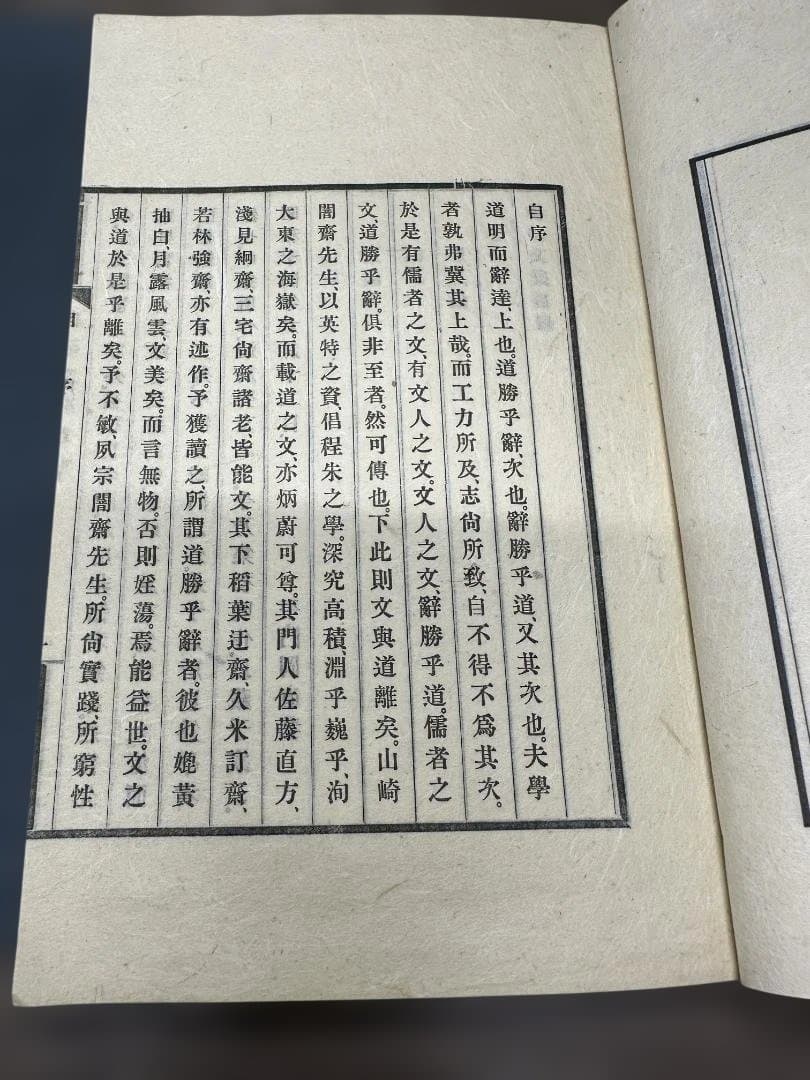 自序
道明而辭達、上也。道勝乎辭、次也。辭勝乎道、又其次也。夫學
者孰弗冀其上哉。而工力所及、志尙所致、自不得不爲其次。
於是有儒者之文、有文人之文。文人之文、辭勝乎道。儒者之
文、道勝乎辭。俱非至者。然可傳也。下此則文與道離矣。山崎
闇齋先生、以英特之資、倡程朱之學。深究高積、淵乎巍乎、洵
大東之海嶽矣。而載道之文、亦炳蔚可尊。其門人佐藤直方、
淺見絅齋、三宅尙齋諸老、皆能文。其下稻葉迂齋、久米訂齋、
若林強齋、亦有述作。予獲讀之、所謂道勝乎辭者。彼也媲黃
抽白、月露風雲、文美矣。而言無物。否則婬蕩。焉能益世。文之
與道於是乎離矣。予不敏、夙宗闇齋先生。所尙實踐、所窮性